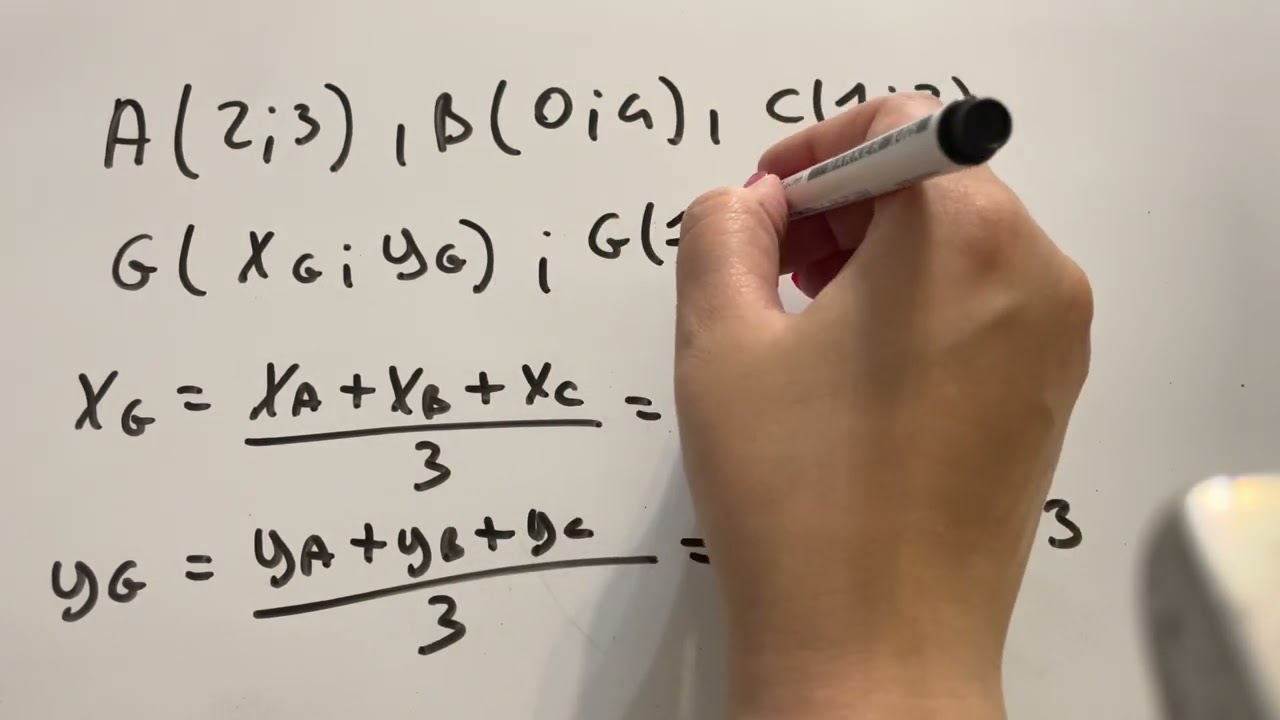 A(2;3) , B(0;4) , C(1;2)
G( xG ; yG ) ; G(
xG = xA + xB + xC / 3 =
yG = yA + yB + yC / 3 = 3